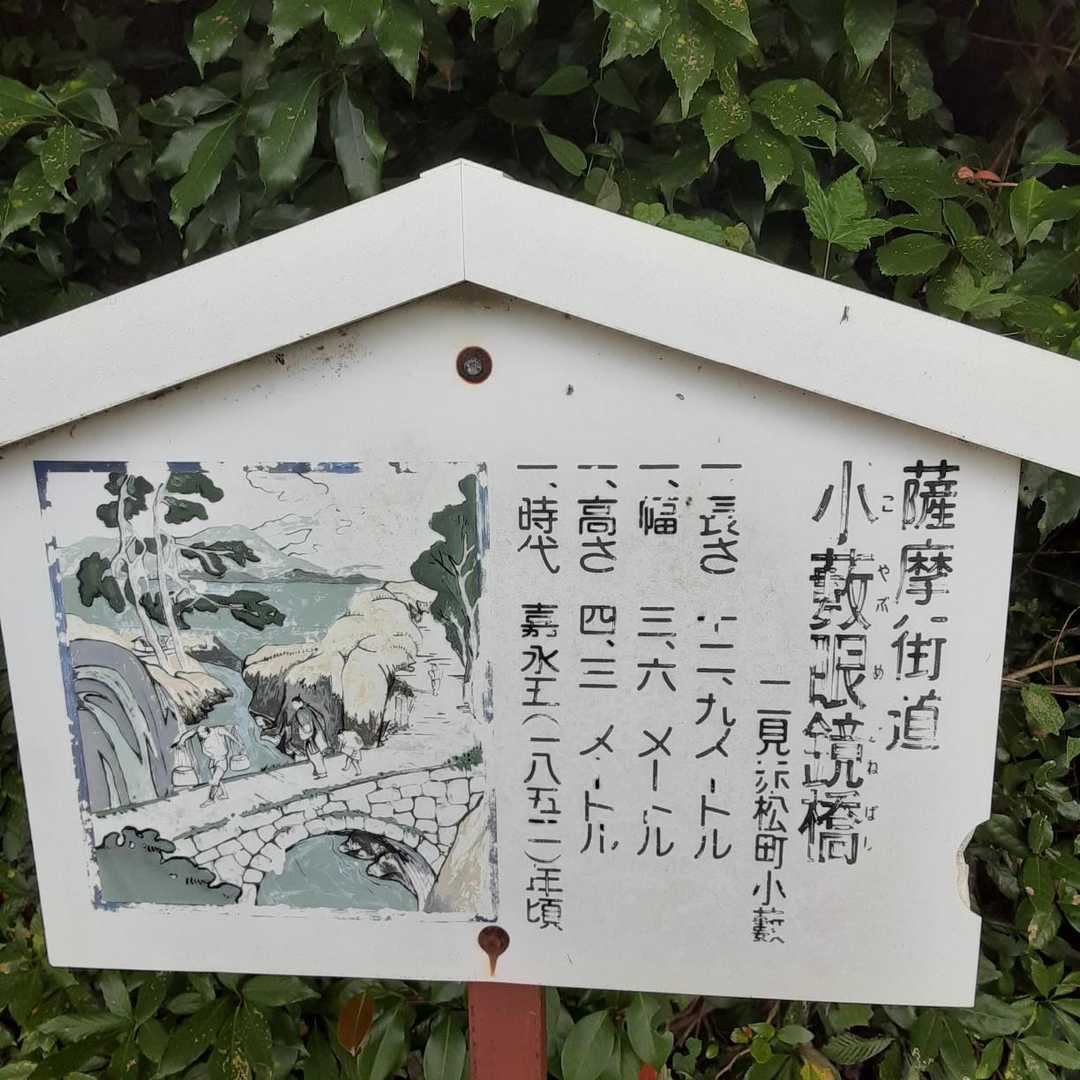 薩摩街道
小藪眼鏡橋
こ やぶ め がね ばし
二見赤松町小藪
一、長さ 二、九メートル
一、幅 三、六メートル
一、高さ 四、三メートル
一、時代 嘉永五(一八五二)年頃